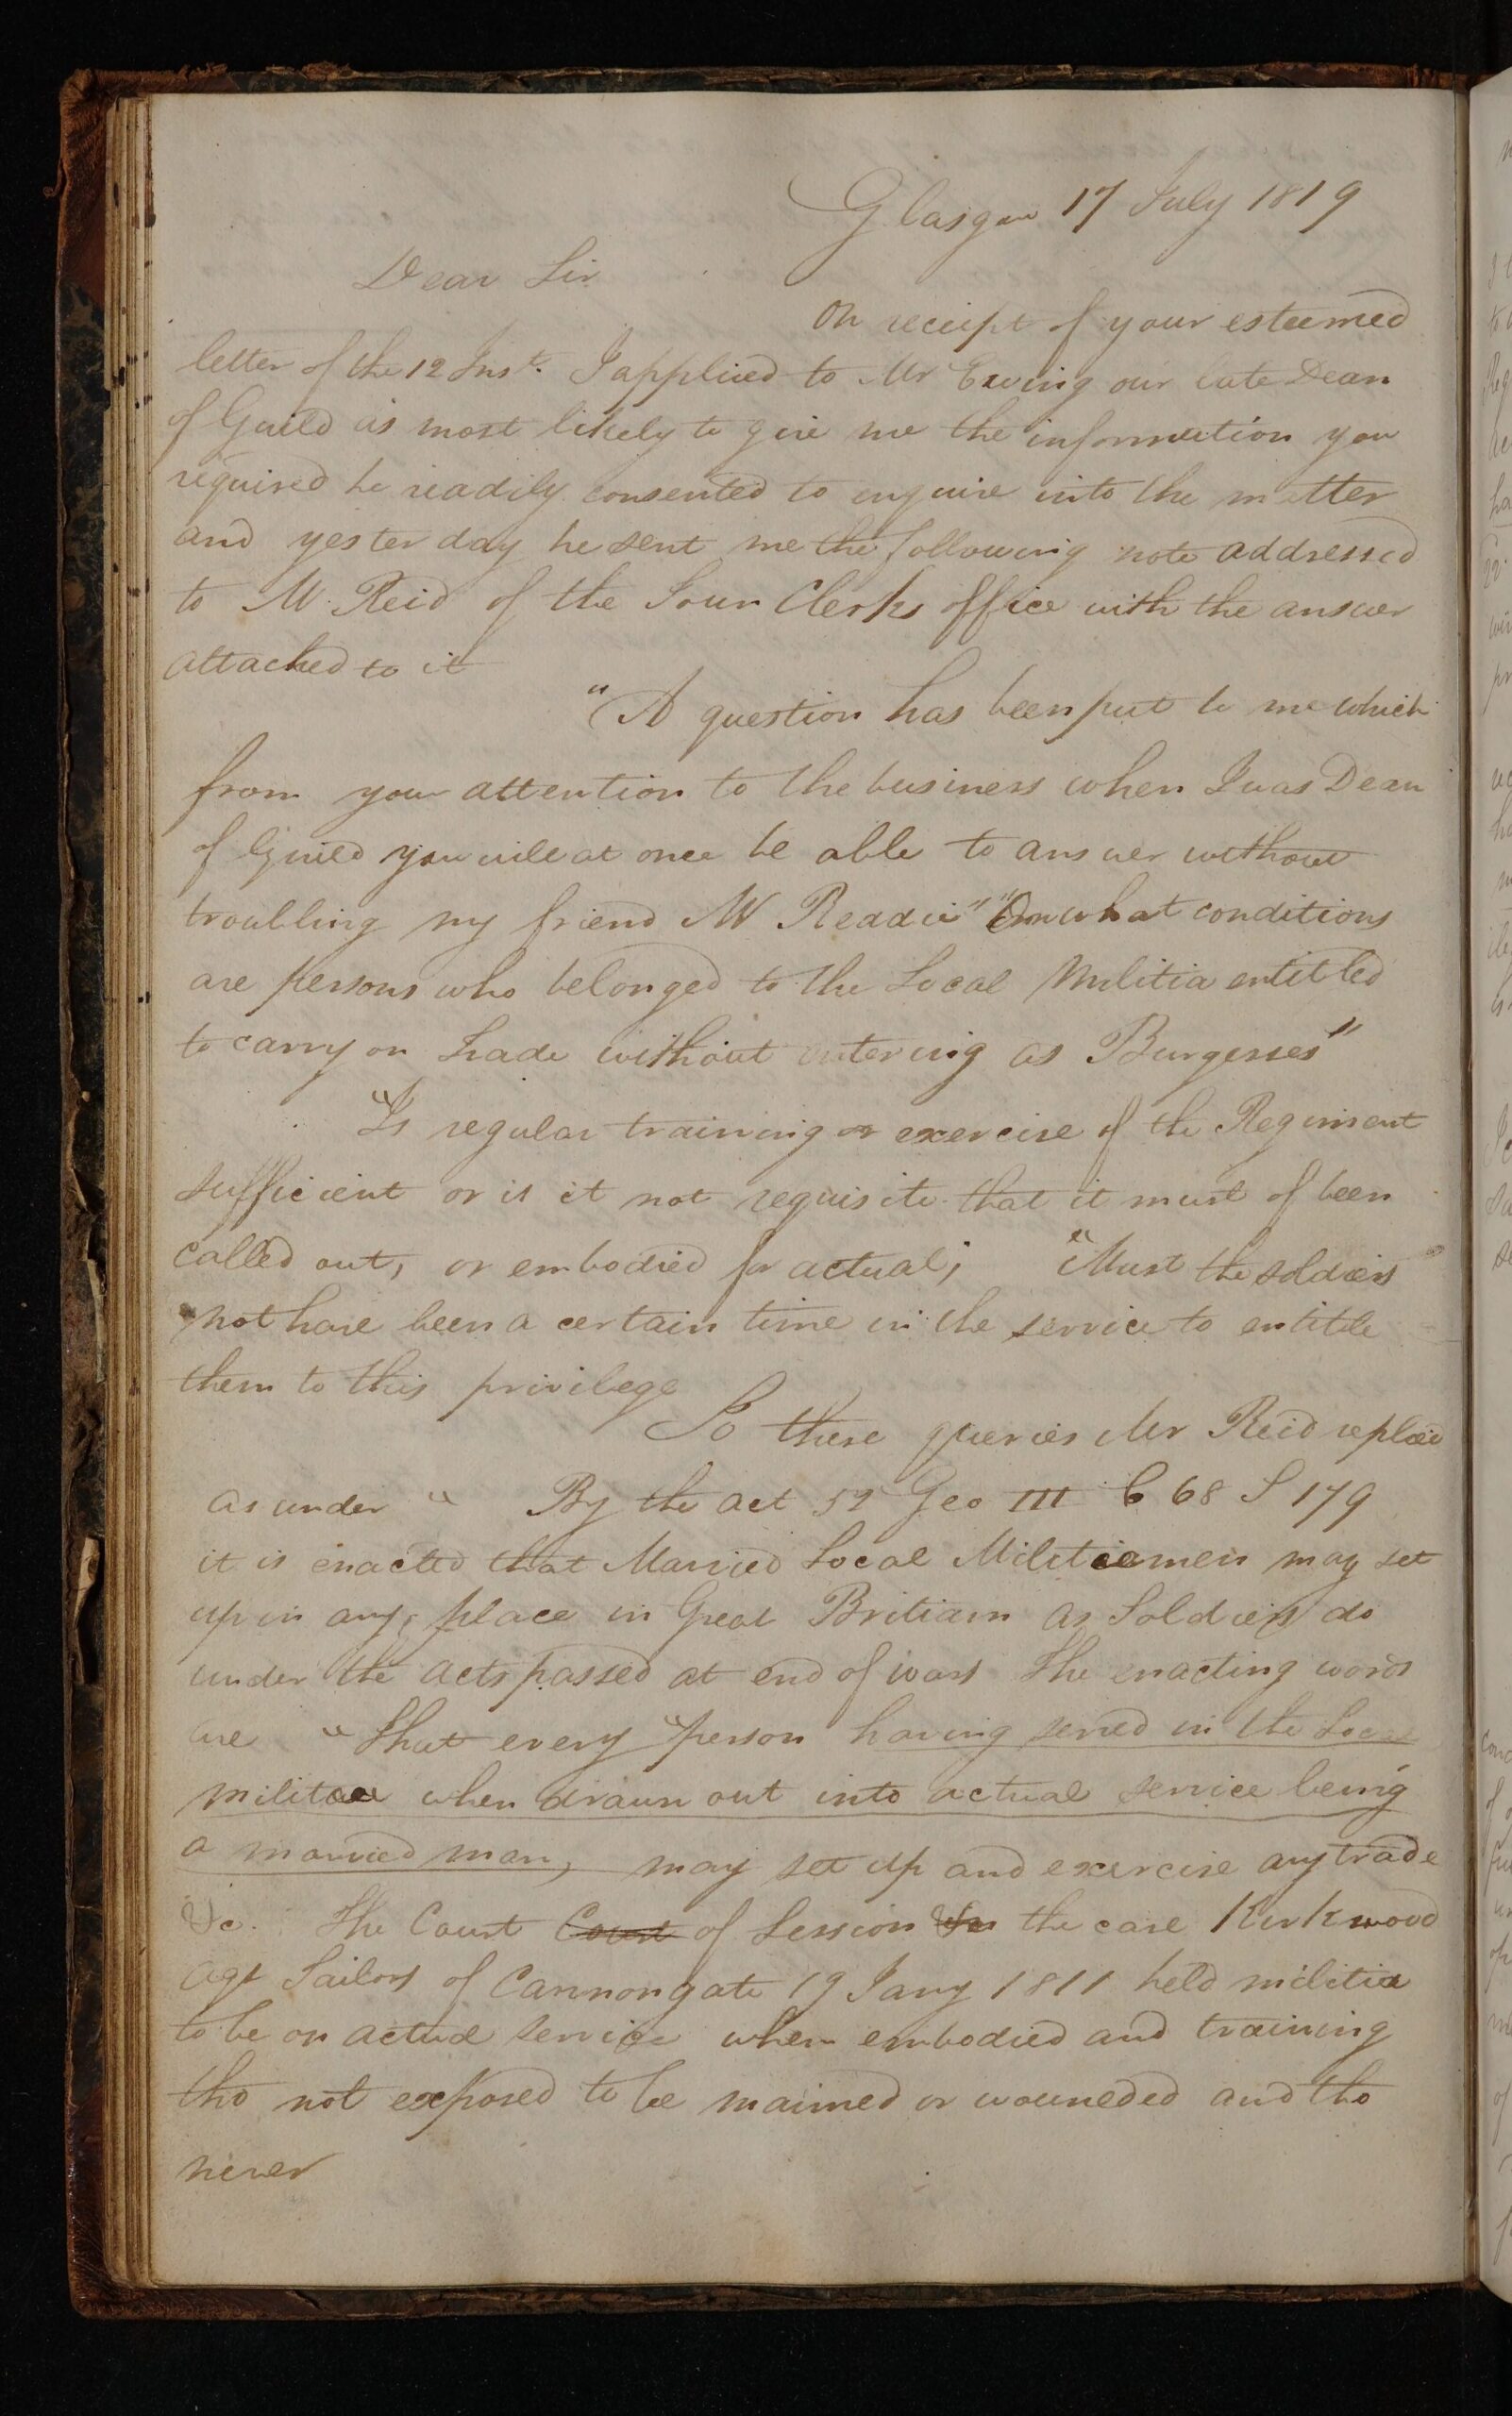 Glasgow 17 July 1819
Dear Sir
On receipt of your esteemed
letter of the 12 Inst. I applied to Mr Ewing our late Dean
of Guild as most likely to give me the information you
required he readily consented to enquire into the matter
and yesterday he sent me the following note addressed
to Mr Reid of the Toun Clerks office with the answer
attached to it
"A question has been put to me which
from your attention to the business when I was Dean
of Guild you will at once be able to answer without
troubling my friend Mr Reddie" "On what conditions
are persons who belonged to the Local Militia entitled
to carry on trade without entering as Burgesses"
"Is regular training or exercise of the Regiment
sufficient or is it not requisite that it must of been
called out, or embodied for actual; "Must the soldiers
not have been a certain time in the service to entitle
them to this privilege
To these queries Mr Reid replied
as under " By the act 52 Geo III C 68 S 179
it is enacted that Married Local Militiamen may set
up in any place in Great Britiain as Soldiers do
under the acts passed at end of wars The enacting words
are "That every "person having served in the Local
militia when drawn out into actual service being
a married man, may set up and exercise any trade
&c. The Court Court of Session In the case Kirkwood
agt Tailors of Cannongate 19 Jany 1811 held militia
to be on actual service when embodied and training
tho not exposed to be maimed or wouneded and tho
never